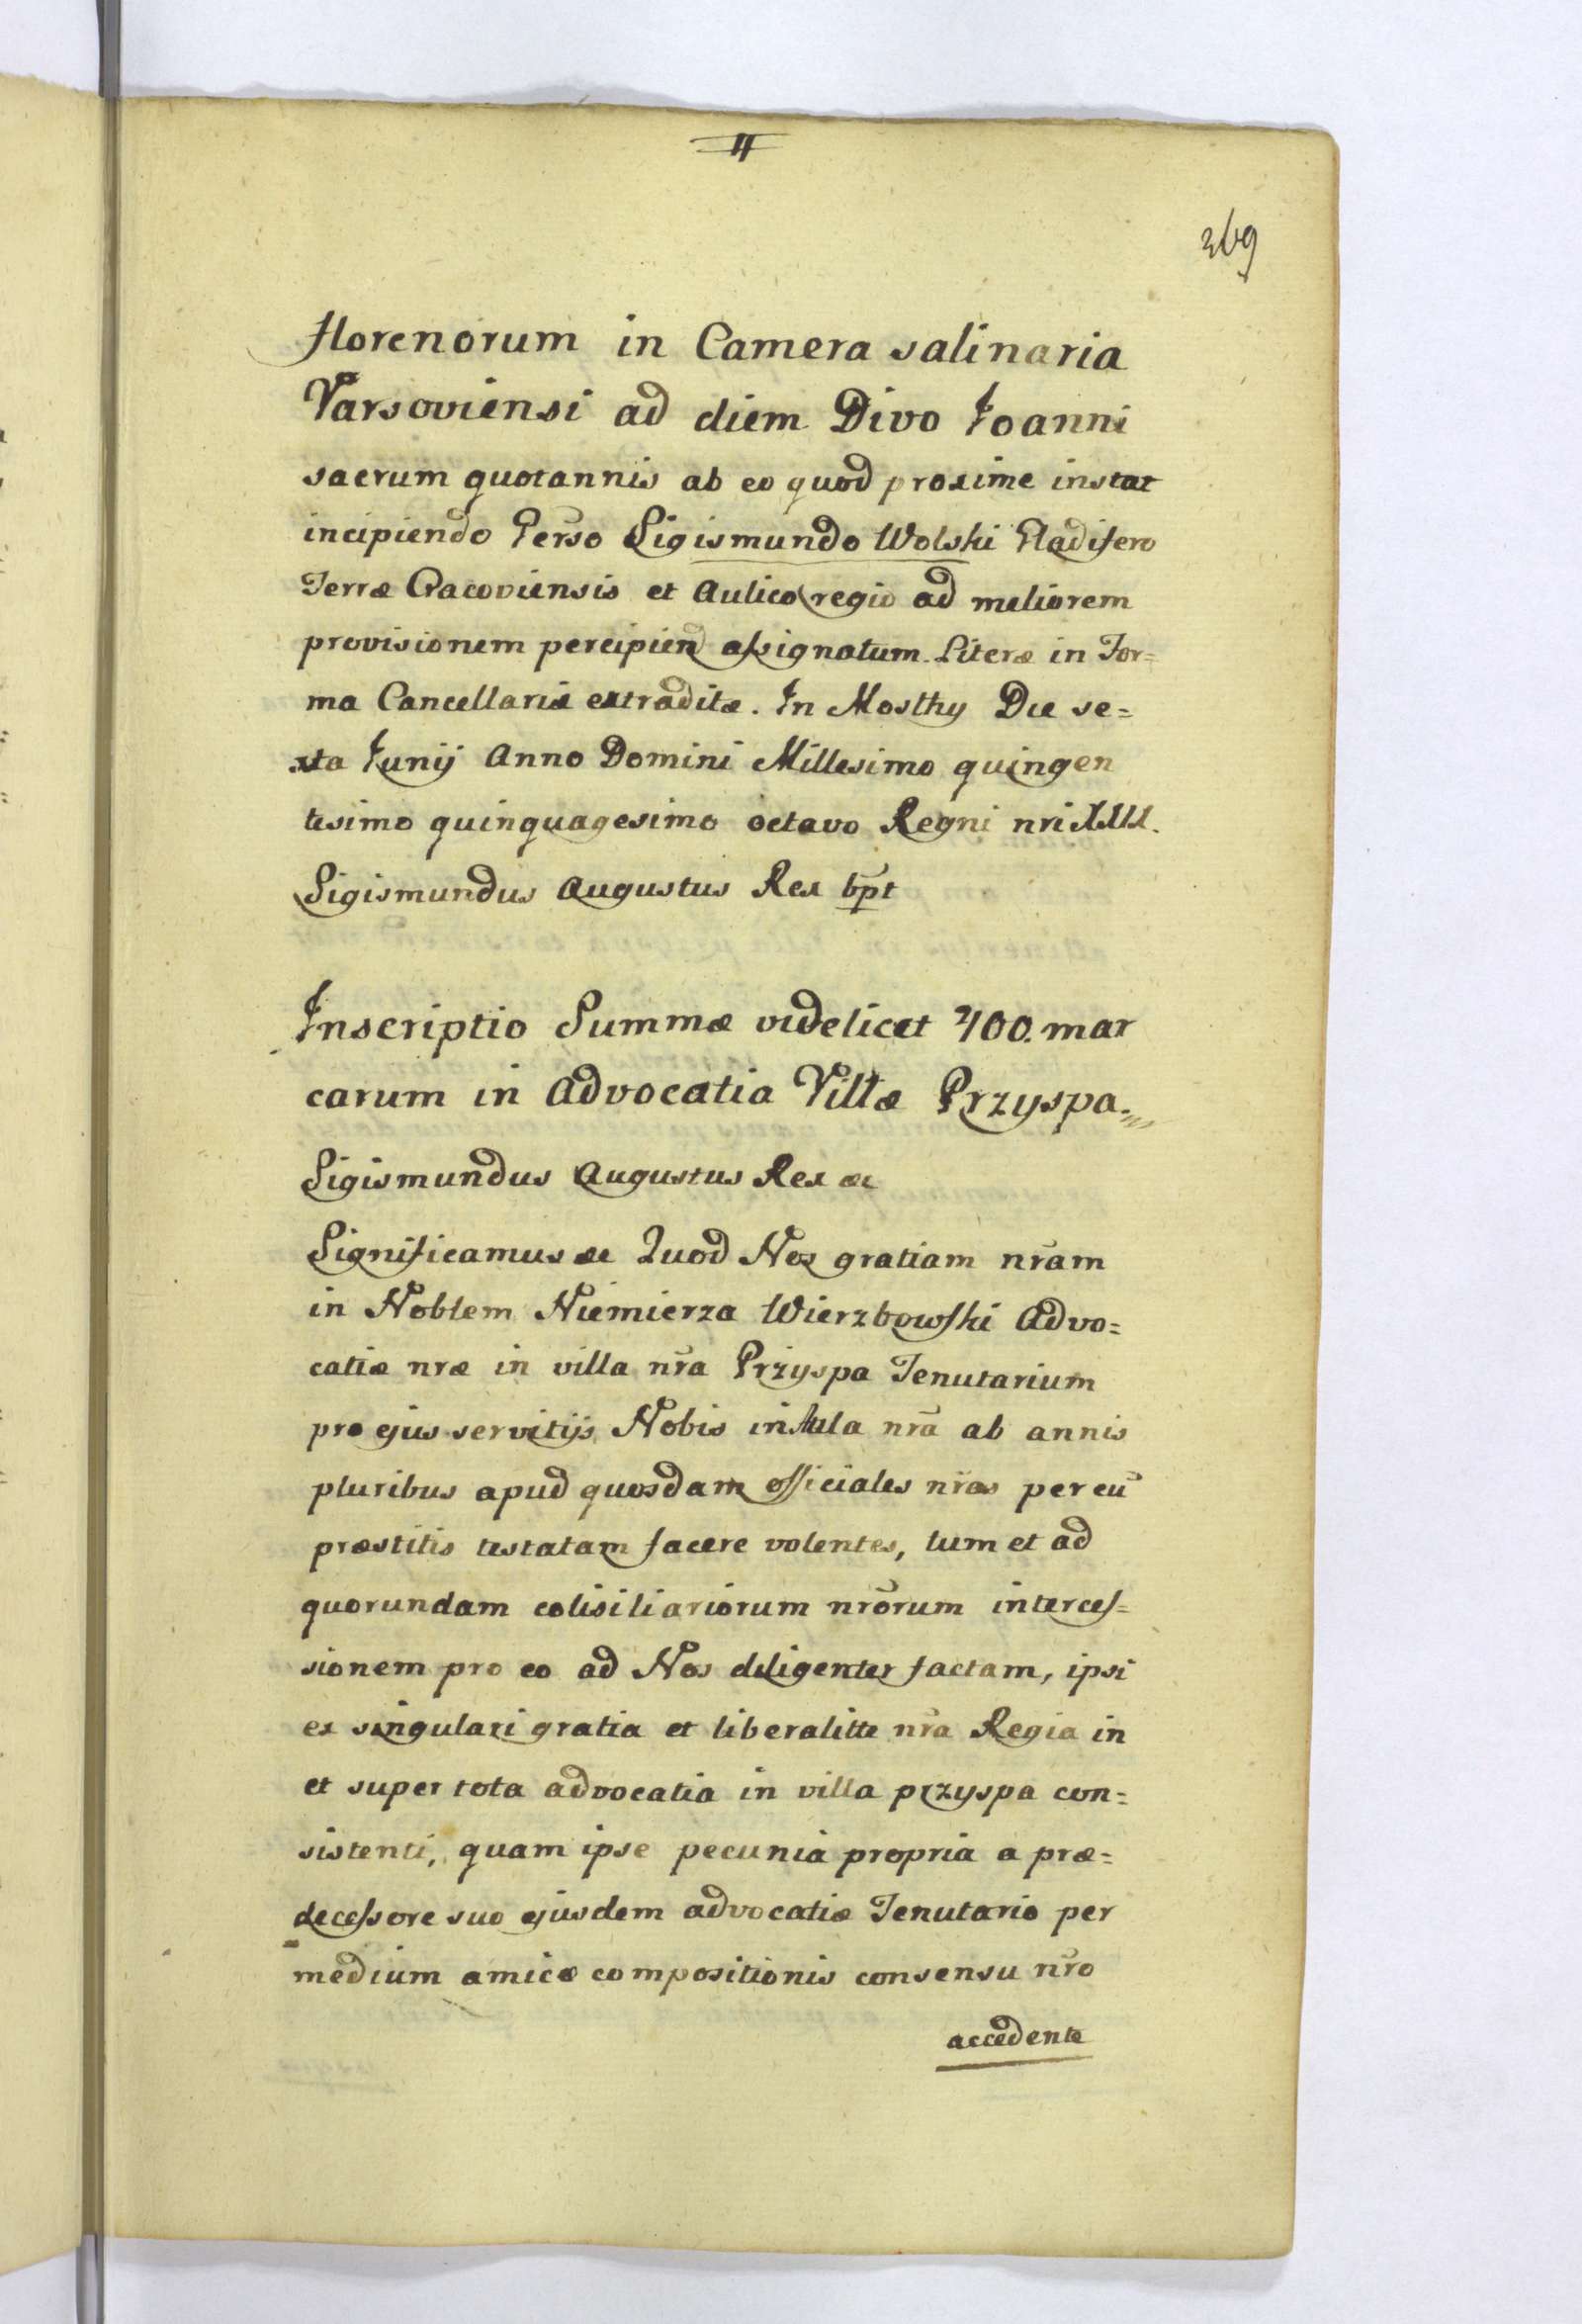 369
florenorum in Camera salinaria
Varsoviensi ad diem Divo Joanni
sacrum quotannis ab eo quod proxime instat
incipiendo Gerso Sigismundo Wolski Gladifero
Terræ Cracoviensis et Aulico regio ad meliorem
provisionem percipiend aſsignatum. Literæ in For=
ma Cancellariæ extraditæ. In Mosthy Die se=
xta Junij Anno Domini Millesimo quingen
tesimo quinquagesimo octavo Regni nri
Sigismundus Augustus Rex
Inscriptio Summæ videlicet 400. mar
carum in Advocatia Villæ Przyspa.
Sigismundus Augustus Rex &c
Significamus &c Quod Nos gratiam nram
in Noblem Niemierza Wierzbowſki Advo=
catiæ nræ in villa nra Przyspa Tenutarium
pro ejus servitijs Nobis in Aula nra ab annis
pluribus apud quosdam officiales nros per eū
præstitis testatam facere volentes, tum et ad
quorundam colisiliariorum nrorum interceſ=
sionem pro eo ad Nos diligenter factam, ipsi
ex singulari gratia et liberalitte nra Regia in
et super tota advocatia in villa przyspa con=
sistenti, quam ipse pecunia propria a præ=
deceſsore suo ejusdem advocatiæ Tenutario per
medium amicæ compositionis consensu nro
accedente